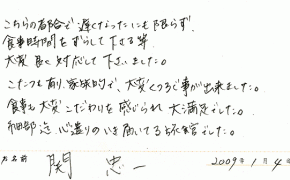 こちらの都合で遅くなったにも限らず、
食事時間をずらして下さる等
大変良く対応して下さいました。
こたつも有り、家族的で、大変くつろぐ事が出来ました。
食事も大変こだわりを感じられ大満足でした。
細部迄心遣りのいき届いてる旅館でした。
お名前 関 忠一 2009年1月4